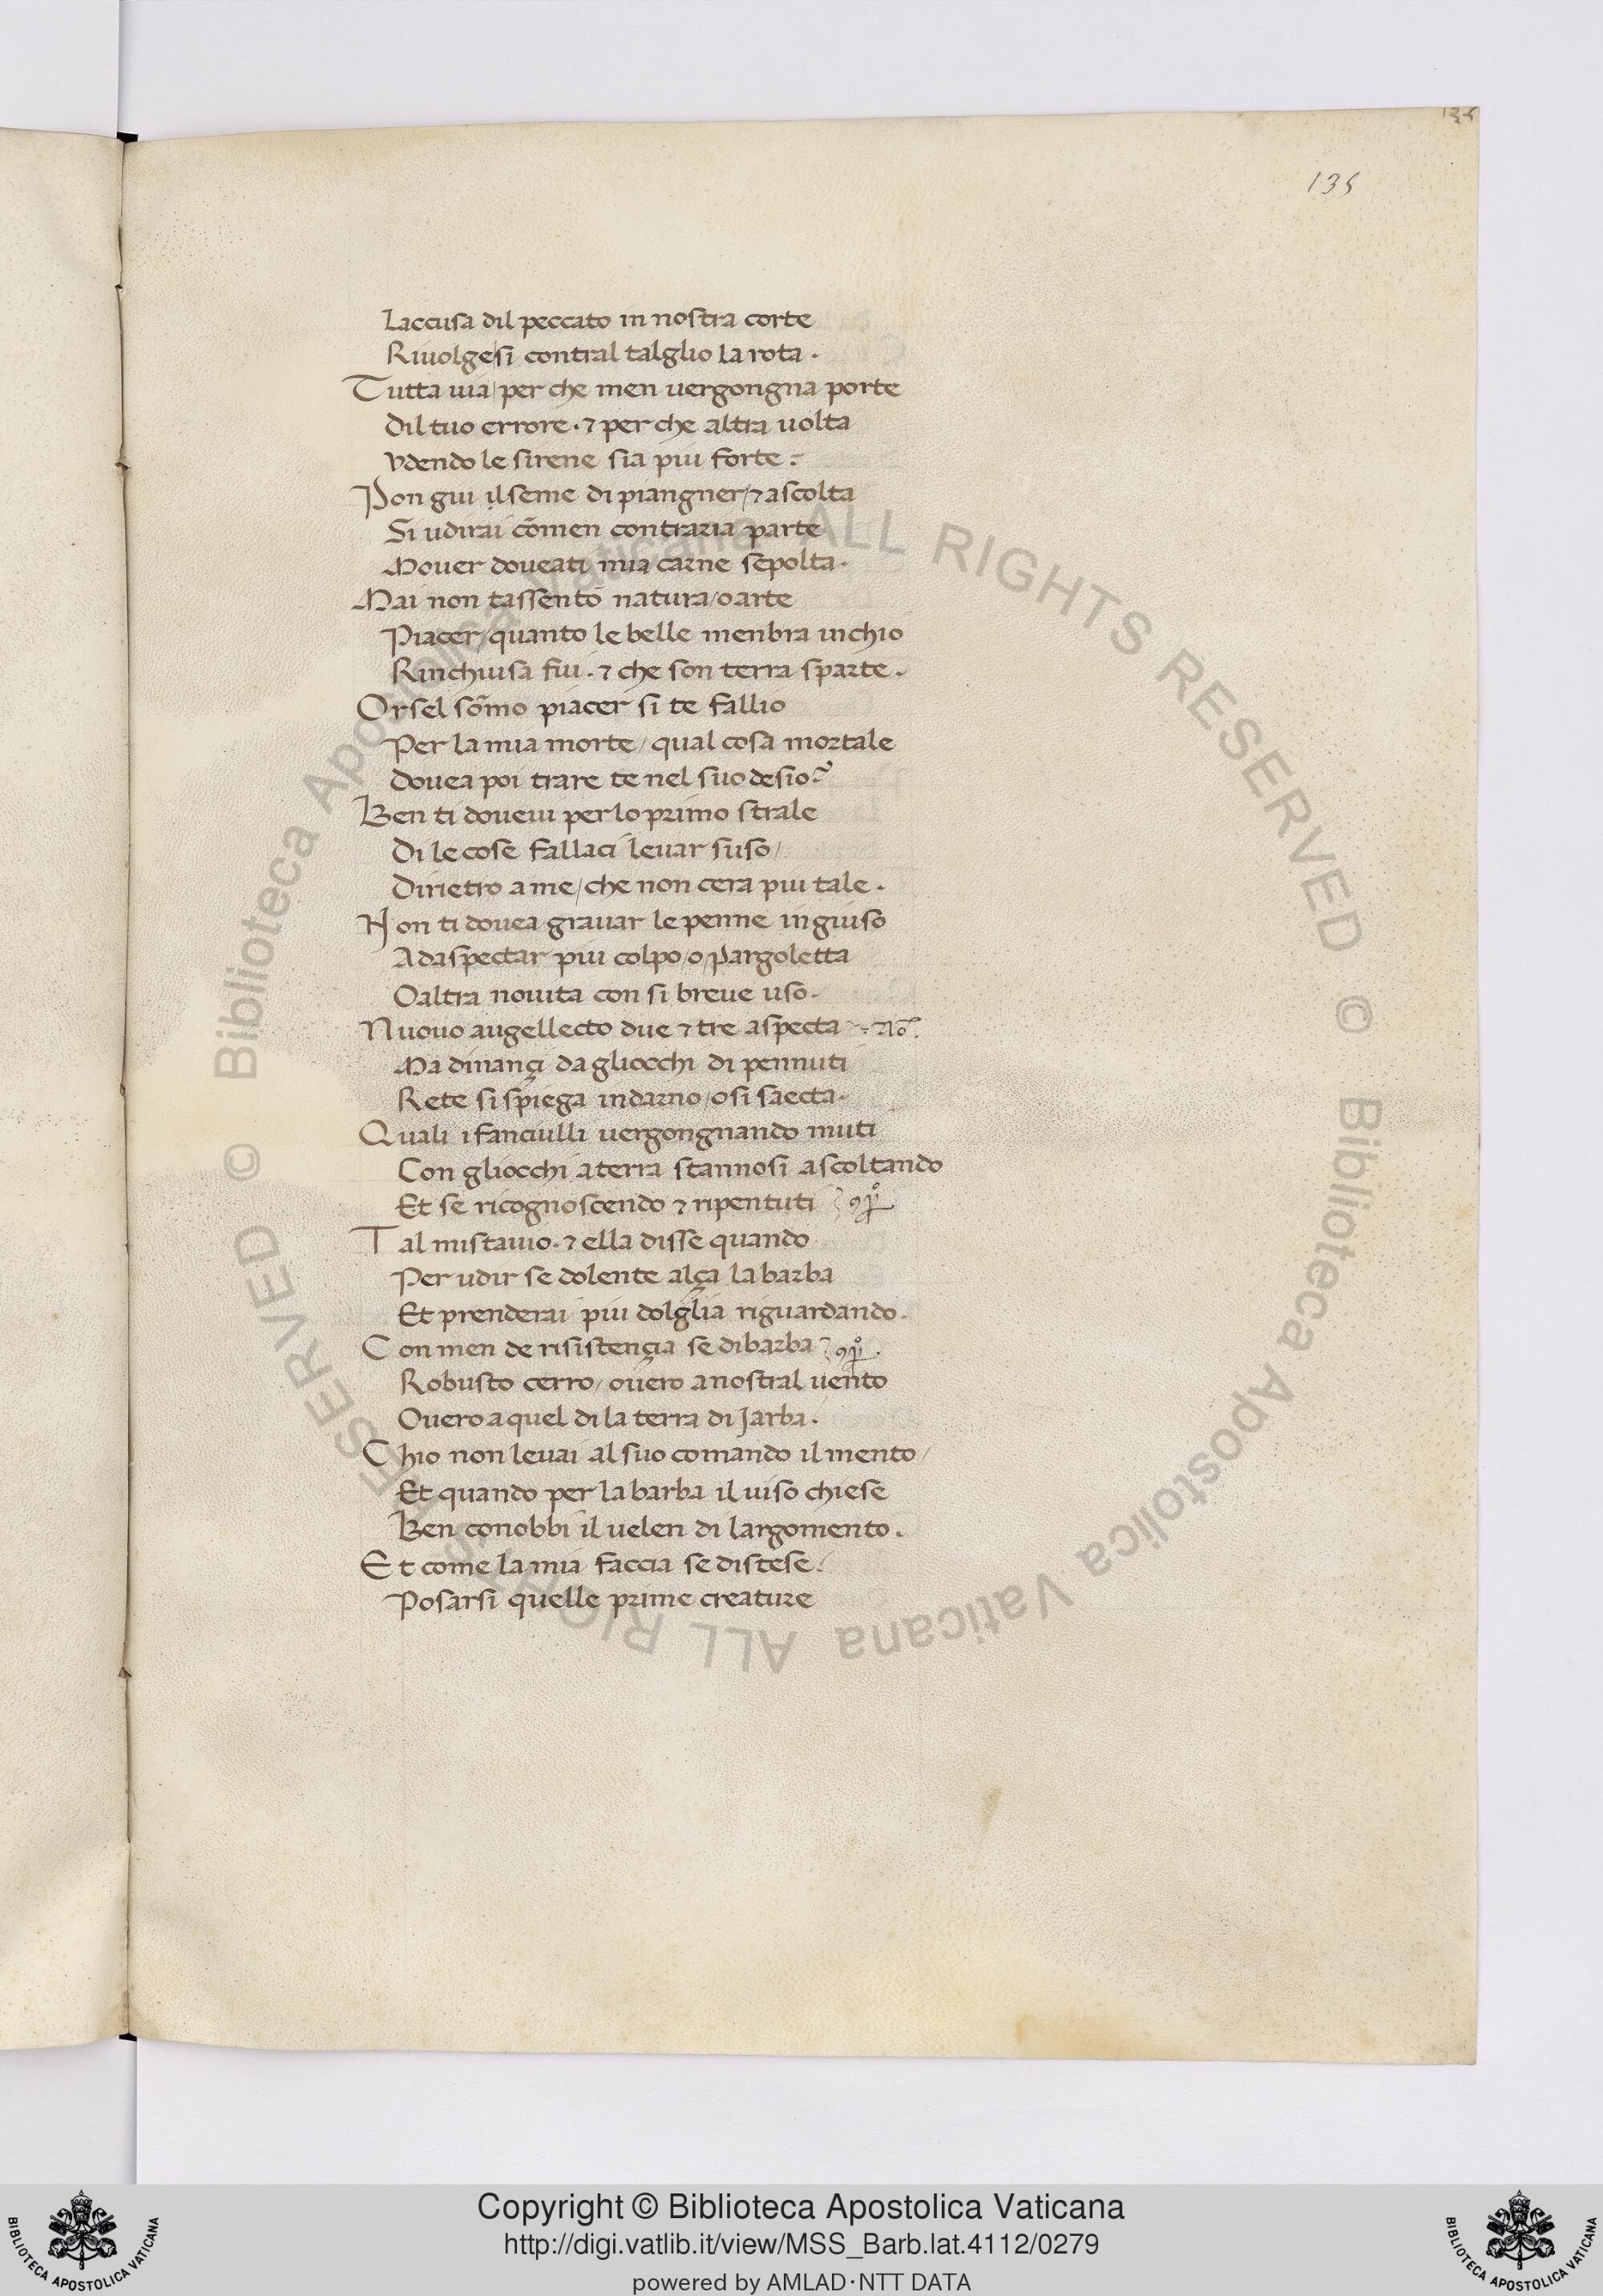 135
135
Laccusa dil peccato in nostra corte
Riuolgesi contral talglio la rota .
Tutta uia / per che men uergongna porte
Dil tuo errore . ⁊ per che altra uolta
Vdendo le sirene sia piu forte :
Pon giu il seme di piangner / ⁊ ascolta
Si udirai cōmen contraria parte
Mouer doueati mia carne sepolta .
Mai non tassentō natura / o arte
Piacer / quanto le belle menbra inchio
Rinchiusa fui . ⁊ che son terra sparte .
Orsel sōmo piacer si te fallio
Per la mia morte / qual cosa mortale
douea poi trare te nel suo desio ?
Ben ti doueui per lo primo strale
Di le cose fallaci leuar suso /
Dirietro a me / che non cera piu tale .
Non ti douea grauar le penne ingiuso
Adaspectar piu colpo / o pargoletta
O altra nouita con si breue uso .
Nuouo augellecto due ⁊ tre aspecta
Ma dinançi da gliocchi di pennuti
Rete si spiega indarno / o si saecta .
Quali i fanciulli uergongnando muti
Con gliocchi a terra stannosi ascoltando
Et se ricognoscendo ⁊ ripentuti
Tal mistauio . ⁊ ella disse quando
Per udir se dolente alça la barba
Et prenderai piu dolglia riguardando .
Con men de risistença se dibarba
Robusto cerro / ouero a nostral uento
Ouero a quel di la terra di Jarba .
Chio non leuai al suo comando il mento /
Et quando per la barba il uiso chiese
Ben conobbi il uelen di largomento .
Et come la mia faccia se distese .
Posarsi quelle prime creature
© Biblioteca Apostolica Vaticana ALL RIGHTS RESERVED
© Biblioteca Apostolica Vaticana ALL RIGHTS RESERVED
Copyright © Biblioteca Apostolica Vaticana
http://digi.vatlib.it/view/MSS_Barb.lat.4112/0279
powered by AMLAD·NTT DATA
BIBLIOTECA APOSTOLICA VATICANA
BIBLIOTECA APOSTOLICA VATICANA